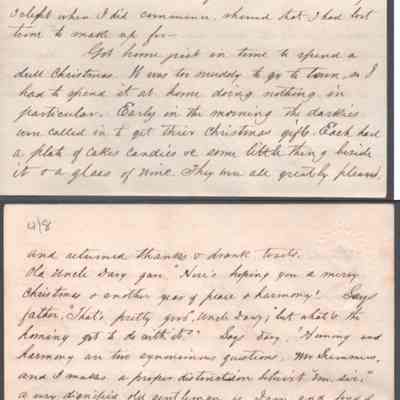 I slept when I did commence, showed that I had lost
time to make up for—
Got home just in time to spend a
dull Christmas. It was too muddy to go to town, so I
had to spend it at home doing nothing in
particular. Early in the morning the darkies
were called in to get their Christmas gifts. Each had
a plate of cakes candies &c some little thing beside
it & a glass of wine. They were all greatly pleased,
4/8
and returned thanks & drank toasts.
Old Uncle Davy gave, "Here's hoping you a merry
Christmas & another year of peace & harmony! Says
father, "That's pretty good, Uncle Davy; but what's the
hominy got to do with it?" Says Davy, "Hominy and
harmony are two synonimous questions, Mr Simmons,
and I makes a proper distinction betwixt 'em, sir."
a very dignified old gentleman is Sam and